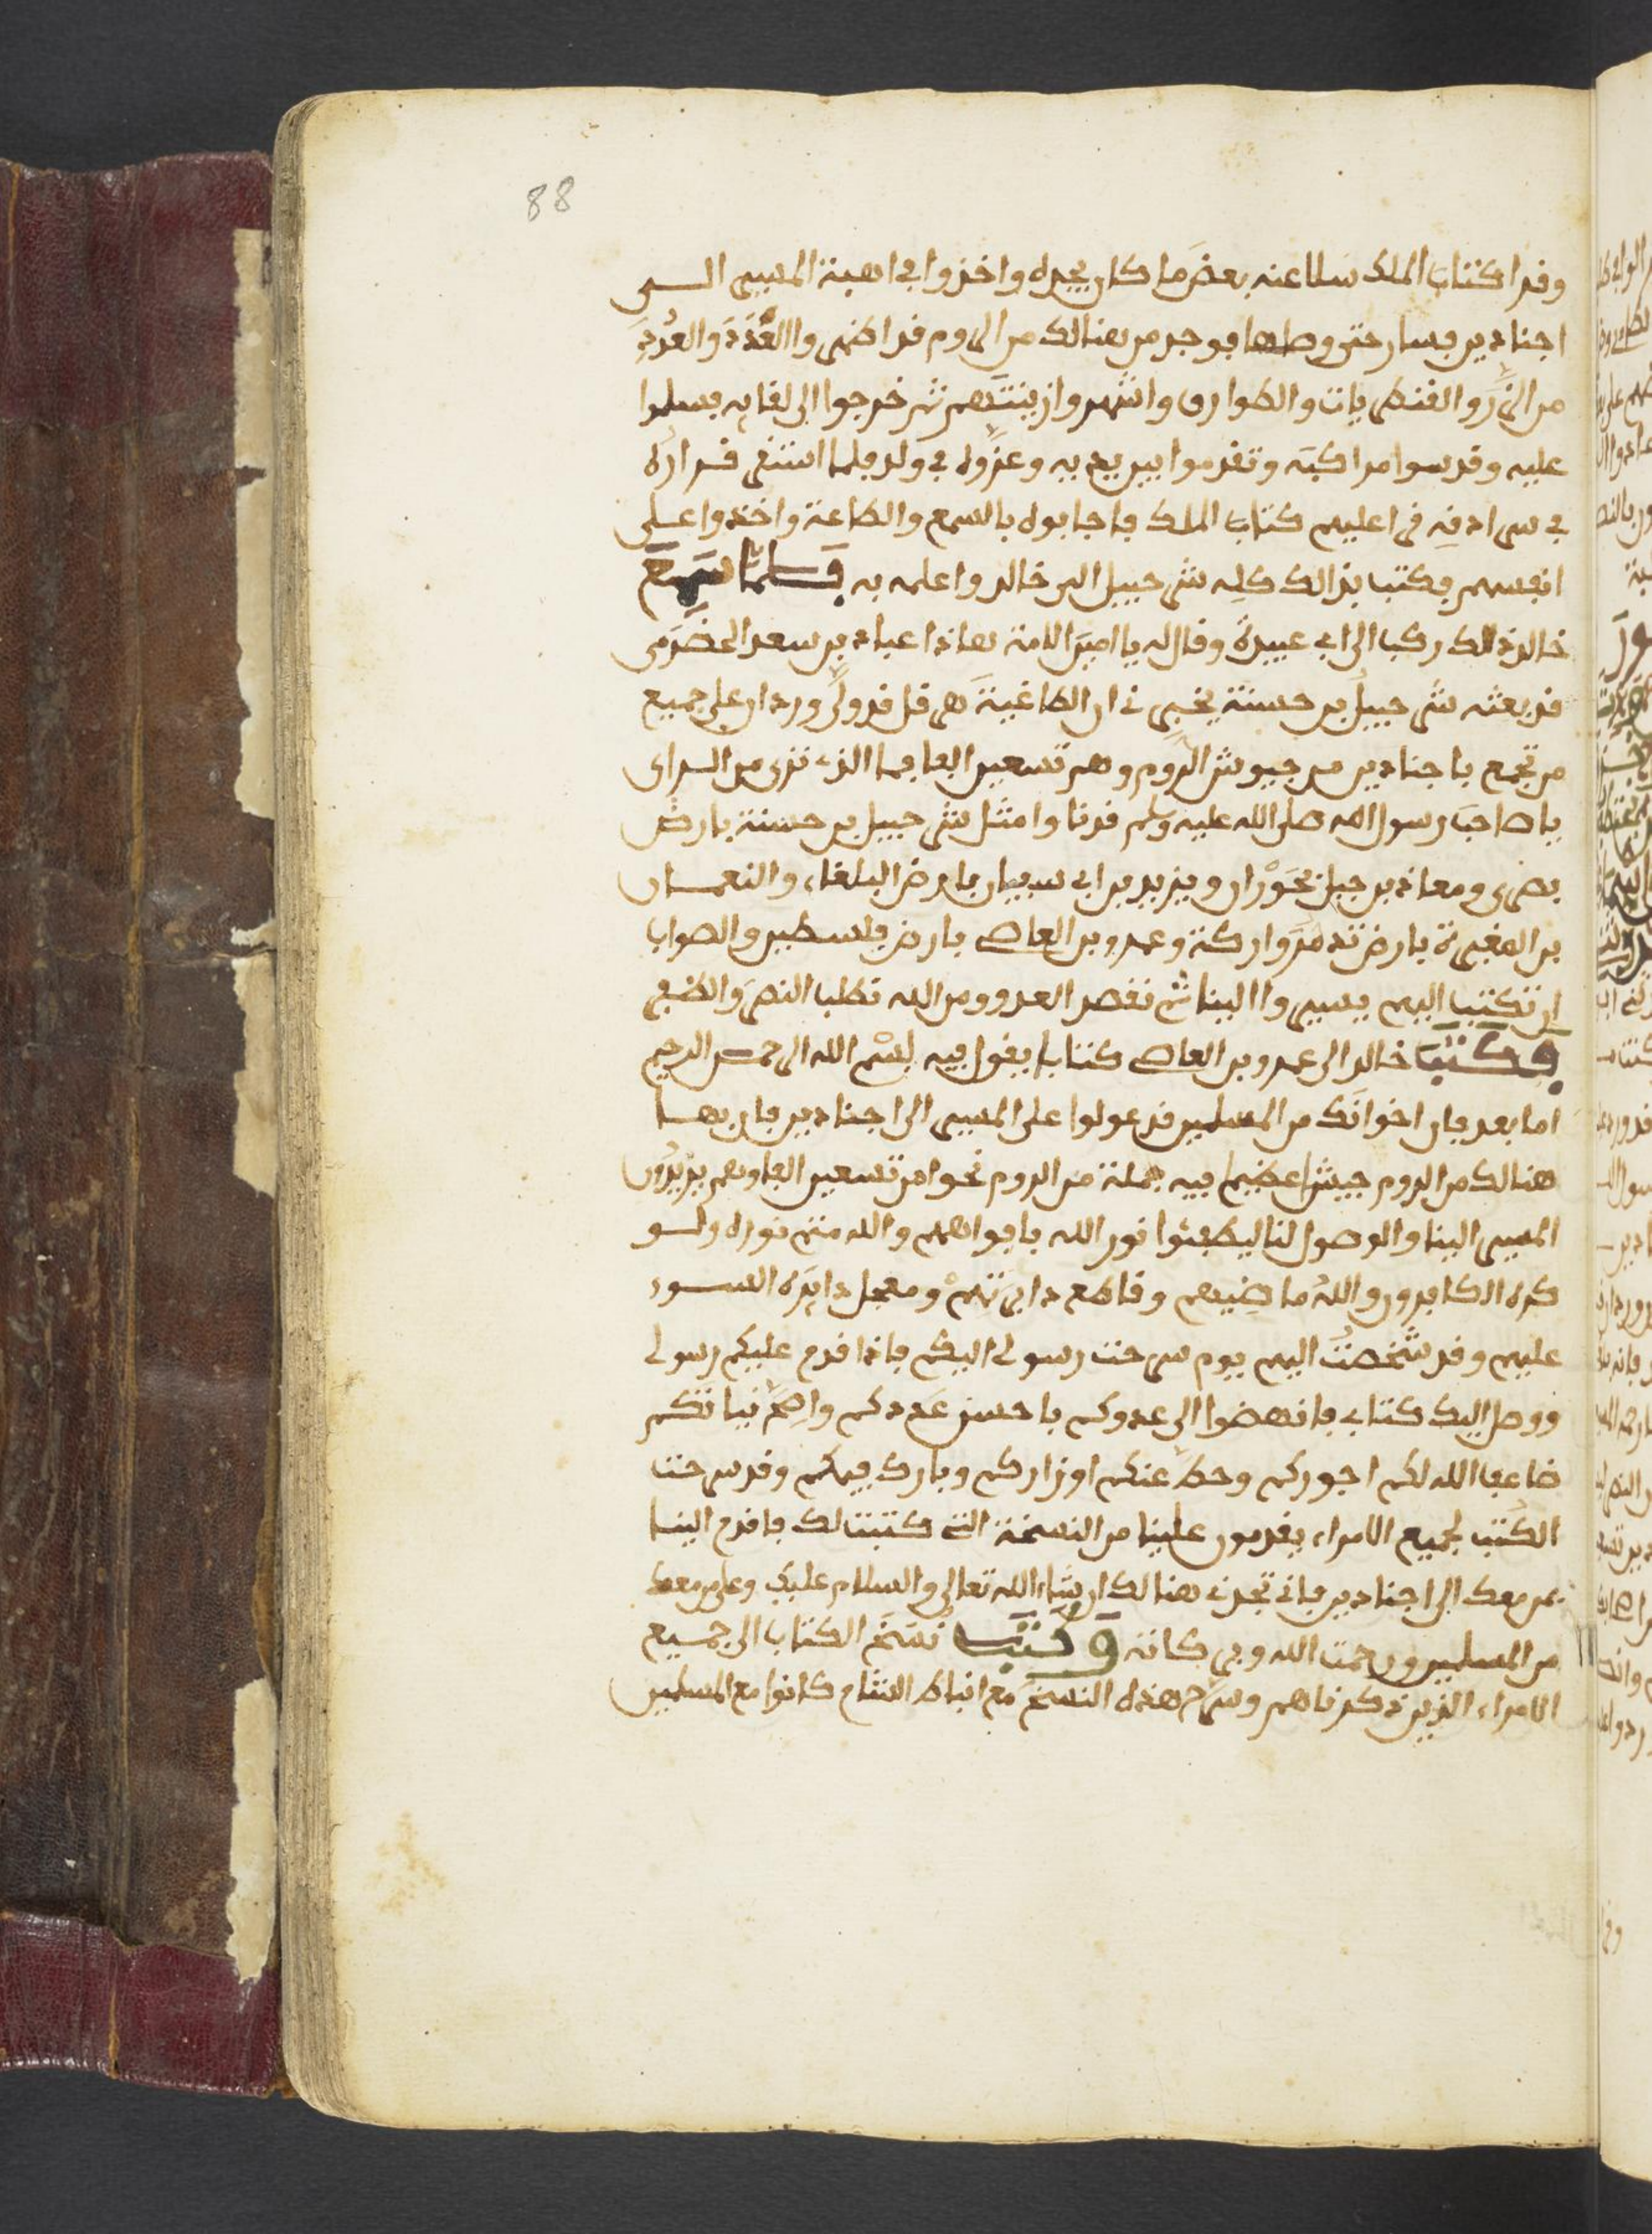 88
وقرا كتاب الملك سلا عنه بعض ما كان يجده واخذوا في اهبة المسير الى
اجنادين فسار حتى وصلها فوجد من هنالك من الروم قد اظهروا العُدَدَ والعُدة
من الزرد والقنطريات والطوارق واشهروا زينتهم ثم خرجوا الى لقايه فسلموا
عليه وقدسوا مراكبه وتقدموا بين يديه وعزوه في ولد فلما استقر قراره
في سرادقه قرا عليهم كتاب الملك فاجابوه بالسمع والطاعة واخذوا على
انفسهم فكتب بذالك كله شرحبيل الى خالد واعلمه به فلما سمع
خالد ذلك ركب الى ابي عبيدة وقال له يا امين الامة هاذا عباد بن سعد الحضرمي
قد بعثه شرحبيل بن حسنة يخبر ني ان الطاغية هرقل قد ولى وردان على جميع
من تجمع باجنادين من جيوش الروم وهم تسعين الفا فما الذي ترى من الراى
يا صاحب رسول الله صلى الله عليه وسلم قرنا وامثل شرحبيل بن حسنة بارض
بصرى ومعاذ بن جبل بحوران ويزيد بن ابي سفيان بارض البلقاء والنعمان
بن المغيرة بارض تدمر واركة وعمرو بن العاص بارض فلسطين والصواب
ان تكتب اليهم يسيروا الينا ثم نقصد العدو ومن الله نطلب النصر والظفر
فكتب خالد الى عمرو بن العاص كتابا يقول فيه بسم الله الرحمن الرحيم
اما بعد فان اخوانك من المسلمين قد عولوا على المسير الى اجنادين فان بها
هنالك من الروم جيشا عظيما فيه جملة من الروم نحوا من تسعين الفا وهم يريدون
المسير الينا والوصول لنا ليطفئوا نور الله بافواههم والله متم نوره ولو
كره الكافرون والله ما ضيهم وقاطع دابرتهم ومعجل دايرة السوء
عليهم وقد شخصت اليهم يوم سرحت رسولي اليكم فاذا قدم عليكم رسولي
ووصل اليك كتابي فانهضوا الى عدوكم باحسن عددكم واصح نياتكم
ضاعف الله لكم اجوركم وحط عنكم اوزاركم وبارك فيكم وقد سرحت
الكتب لجميع الامراء يقدمون علينا من النسخة التي كتبت لك فاقدم الينا
بمن معك الى اجنادين فاني تجدني هنالك ان شاء الله تعالى والسلام عليك وعلى من معك
من المسلمين ورحمت الله وبركاته وكتب نسخ الكتاب الى جميع
الامراء الذين ذكرناهم وسرح هذه النسخ مع انباط الشام كانوا مع المسلمين